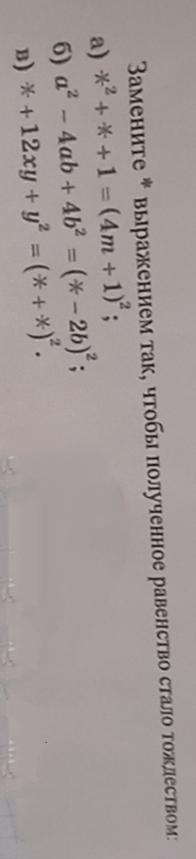 Замените * выражением так, чтобы полученное равенство стало тождеством:
а) *² + * + 1 = (4m + 1)²;
б) a² − 4ab + 4b² = (* − 2b)²;
в) * + 12xy + y² = (* + *)².